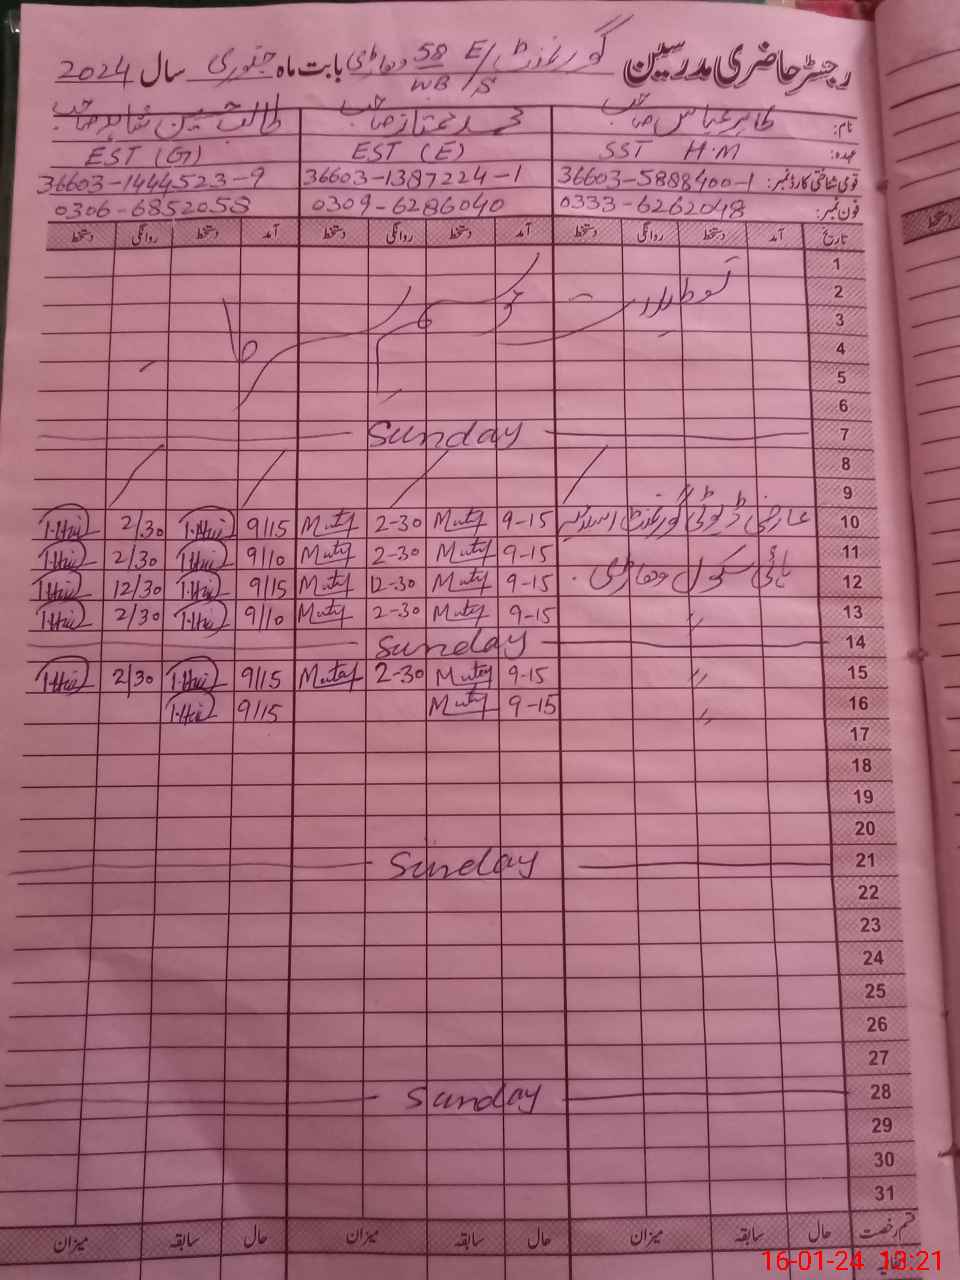 رجسٹر حاضری مدرسین گورنمنٹ E/S 58 WB وہاڑی بابت ماہ جنوری سال 2024
نام: طاہر عباس صاحب محمد ممتاز صاحب طالب حسین شاہد صاحب
عہدہ: SST H.M EST (E) EST (G)
قومی شناختی کارڈ نمبر: 36603-5888400-1 36603-1387224-1 36603-1444523-9
فون نمبر: 0333-6262048 0309-6286040 0306-6852058
تاریخ آمد دستخط روانگی دستخط آمد دستخط روانگی دستخط آمد دستخط روانگی دستخط
1
2
3
4
5
6
7 Sunday
8
9
10 عارضی ڈیوٹی گورنمنٹ اسلامیہ 9-15 Mutaz 2-30 Mutaz 9/15 T.Hus 2/30 T.Hus
11 ہائی سکول وہاڑی 9-15 Mutaz 2-30 Mutaz 9/10 T.Hus 2/30 T.Hus
12 9-15 Mutaz 12-30 Mutaz 9/15 T.Hus 12/30 T.Hus
13 〃 9-15 Mutaz 2-30 Mutaz 9/10 T.Hus 2/30 T.Hus
14 Sunday
15 〃 9-15 Mutaz 2-30 Mutaz 9/15 T.Hus 2/30 T.Hus
16 〃 9-15 Mutaz 9/15 T.Hus
17
18
19
20
21 Sunday
22
23
24
25
26
27
28 Sunday
29
30
31
قسم رخصت حال سابقہ میزان حال سابقہ میزان حال سابقہ میزان
16-01-24 13:21